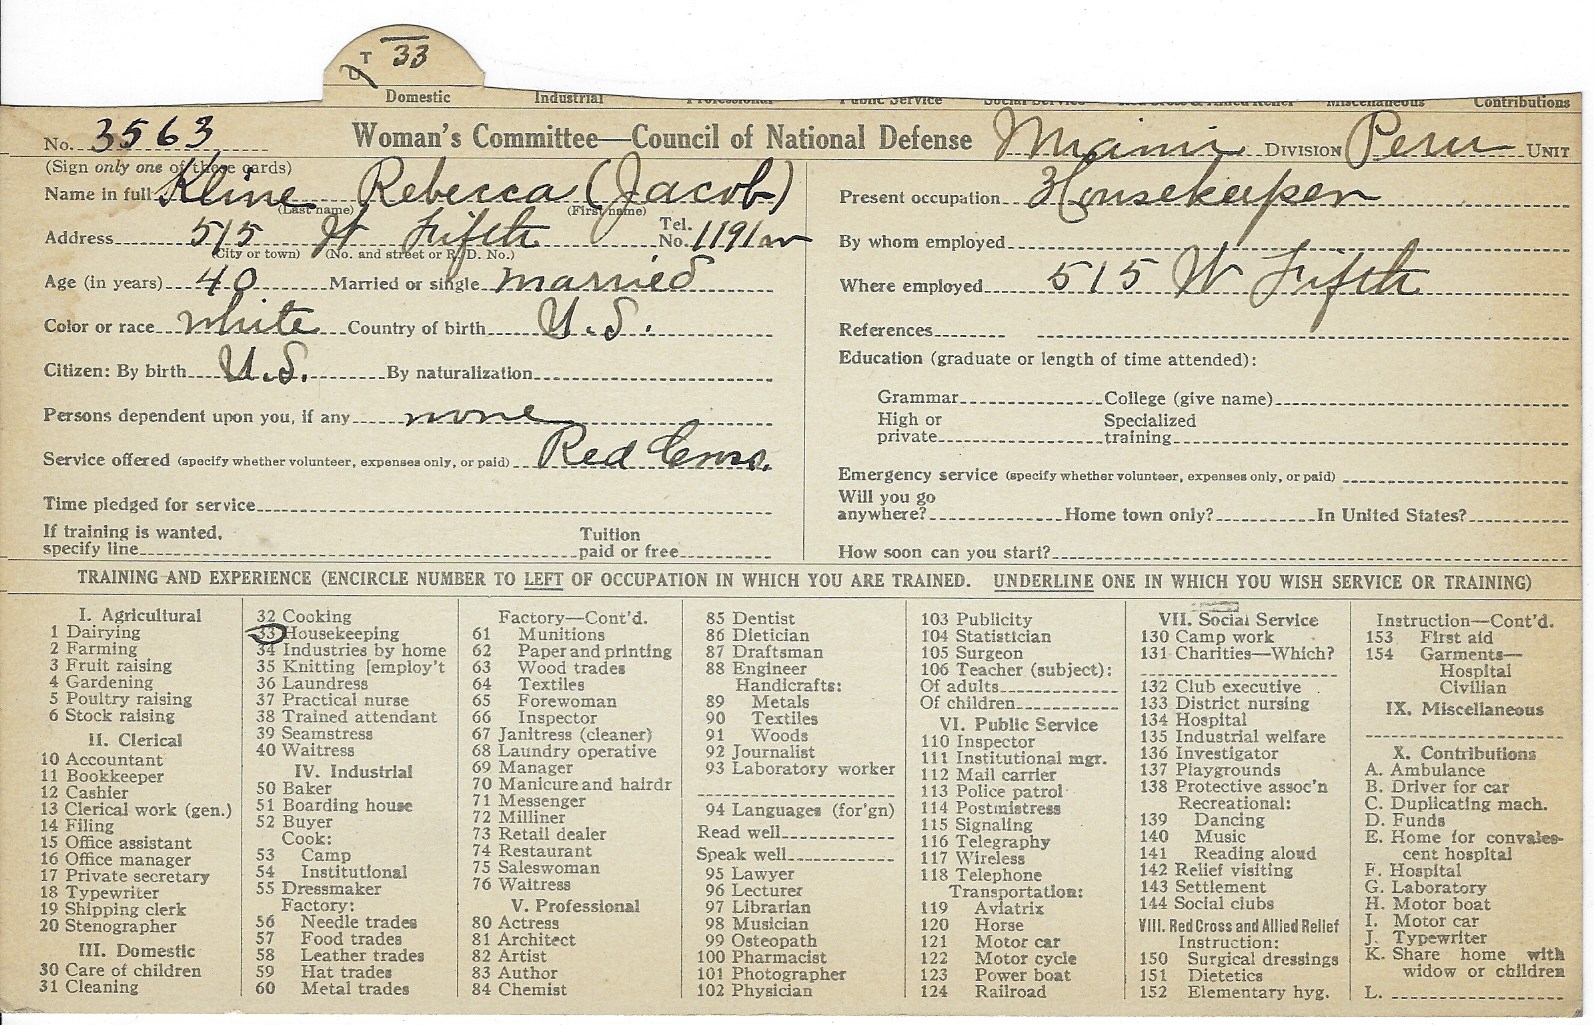 T 33
U
Domestic Industrial Professional Public Service Social Service Red Cross & Allied Relief Miscellaneous Contributions
No. 3563 Woman's Committee—Council of National Defense Miami DIVISION Peru UNIT
(Sign only one of these cards)
Name in full Kline Rebecca (Jacob)
(Last name) (First name)
Address 515 W Fifth Tel. No. 1191
(City or town) (No. and street or R. D. No.)
Age (in years) 40 Married or single married
Color or race white Country of birth U.S.
Citizen: By birth U.S. By naturalization
Persons dependent upon you, if any none
Service offered (specify whether volunteer, expenses only, or paid) Red Cross.
Time pledged for service
If training is wanted, specify line Tuition paid or free
Present occupation Housekeeper
By whom employed
Where employed 515 W Fifth
References
Education (graduate or length of time attended):
Grammar College (give name)
High or private Specialized training
Emergency service (specify whether volunteer, expenses only, or paid)
Will you go anywhere? Home town only? In United States?
How soon can you start?
TRAINING AND EXPERIENCE (ENCIRCLE NUMBER TO LEFT OF OCCUPATION IN WHICH YOU ARE TRAINED. UNDERLINE ONE IN WHICH YOU WISH SERVICE OR TRAINING)
I. Agricultural
1 Dairying
2 Farming
3 Fruit raising
4 Gardening
5 Poultry raising
6 Stock raising
II. Clerical
10 Accountant
11 Bookkeeper
12 Cashier
13 Clerical work (gen.)
14 Filing
15 Office assistant
16 Office manager
17 Private secretary
18 Typewriter
19 Shipping clerk
20 Stenographer
III. Domestic
30 Care of children
31 Cleaning
32 Cooking
33 Housekeeping
34 Industries by home
35 Knitting [employ't
36 Laundress
37 Practical nurse
38 Trained attendant
39 Seamstress
40 Waitress
IV. Industrial
50 Baker
51 Boarding house
52 Buyer
Cook:
53 Camp
54 Institutional
55 Dressmaker
Factory:
56 Needle trades
57 Food trades
58 Leather trades
59 Hat trades
60 Metal trades
Factory—Cont'd.
61 Munitions
62 Paper and printing
63 Wood trades
64 Textiles
65 Forewoman
66 Inspector
67 Janitress (cleaner)
68 Laundry operative
69 Manager
70 Manicure and hairdr
71 Messenger
72 Milliner
73 Retail dealer
74 Restaurant
75 Saleswoman
76 Waitress
V. Professional
80 Actress
81 Architect
82 Artist
83 Author
84 Chemist
85 Dentist
86 Dietician
87 Draftsman
88 Engineer
Handicrafts:
89 Metals
90 Textiles
91 Woods
92 Journalist
93 Laboratory worker
94 Languages (for'gn)
Read well
Speak well
95 Lawyer
96 Lecturer
97 Librarian
98 Musician
99 Osteopath
100 Pharmacist
101 Photographer
102 Physician
103 Publicity
104 Statistician
105 Surgeon
106 Teacher (subject):
Of adults
Of children
VI. Public Service
110 Inspector
111 Institutional mgr.
112 Mail carrier
113 Police patrol
114 Postmistress
115 Signaling
116 Telegraphy
117 Wireless
118 Telephone
Transportation:
119 Aviatrix
120 Horse
121 Motor car
122 Motor cycle
123 Power boat
124 Railroad
VII. Social Service
130 Camp work
131 Charities—Which?
132 Club executive
133 District nursing
134 Hospital
135 Industrial welfare
136 Investigator
137 Playgrounds
138 Protective assoc'n
Recreational:
139 Dancing
140 Music
141 Reading aloud
142 Relief visiting
143 Settlement
144 Social clubs
VIII. Red Cross and Allied Relief
Instruction:
150 Surgical dressings
151 Dietetics
152 Elementary hyg.
Instruction—Cont'd.
153 First aid
154 Garments—
Hospital
Civilian
IX. Miscellaneous
X. Contributions
A. Ambulance
B. Driver for car
C. Duplicating mach.
D. Funds
E. Home for convales-
cent hospital
F. Hospital
G. Laboratory
H. Motor boat
I. Motor car
J. Typewriter
K. Share home with
widow or children
L.